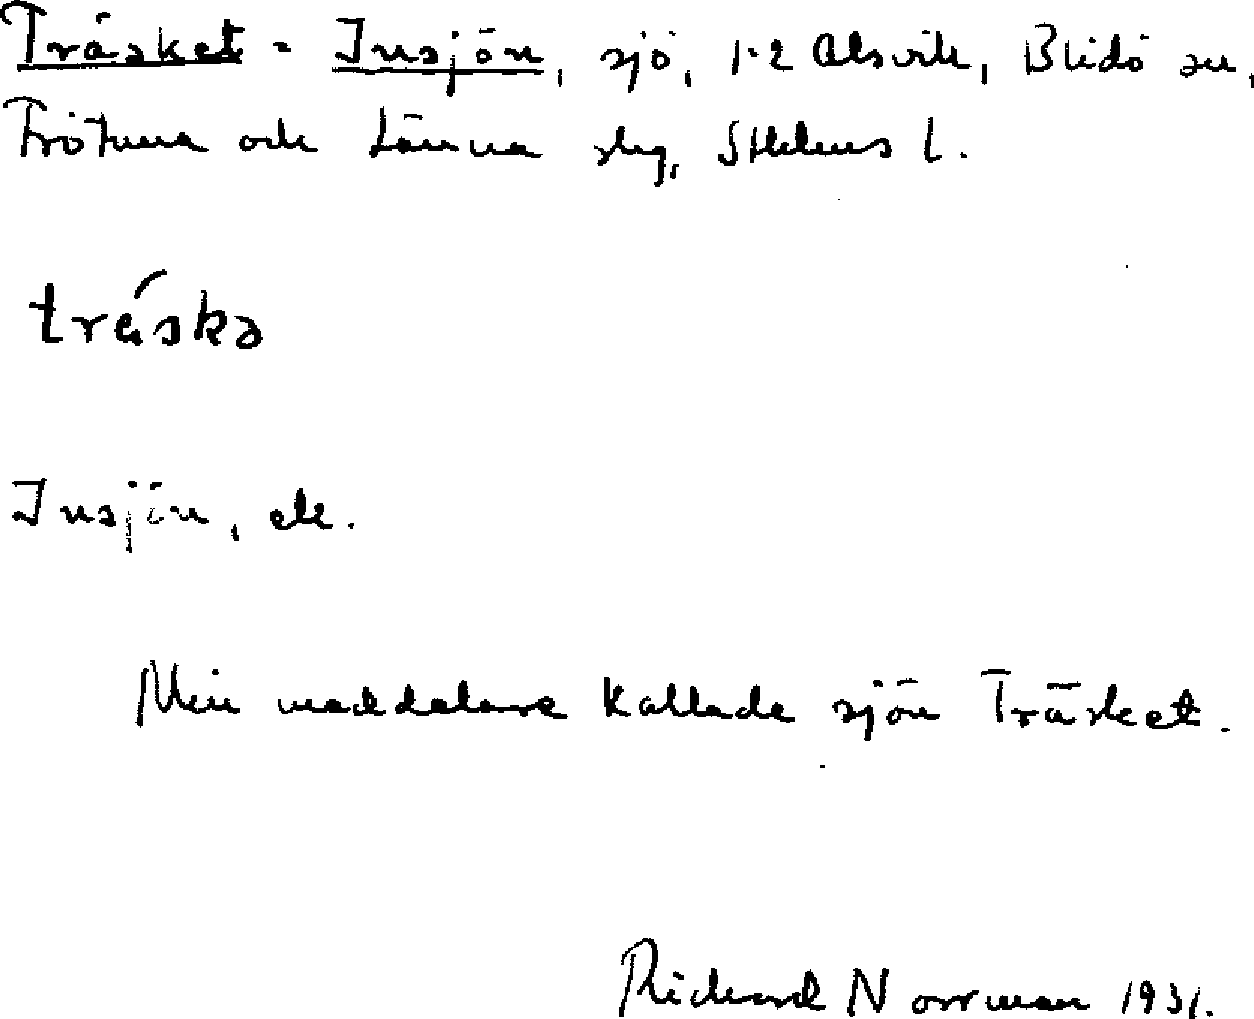 Träsket = Insjön, sjö, 1-2 Alsvik, Blidö sn,
Frötuna och Länna slg, Sthlms l.
träskə
Insjön, ek.
Min meddelare kallade sjön Träsket.
Rickard Norrman 1931.